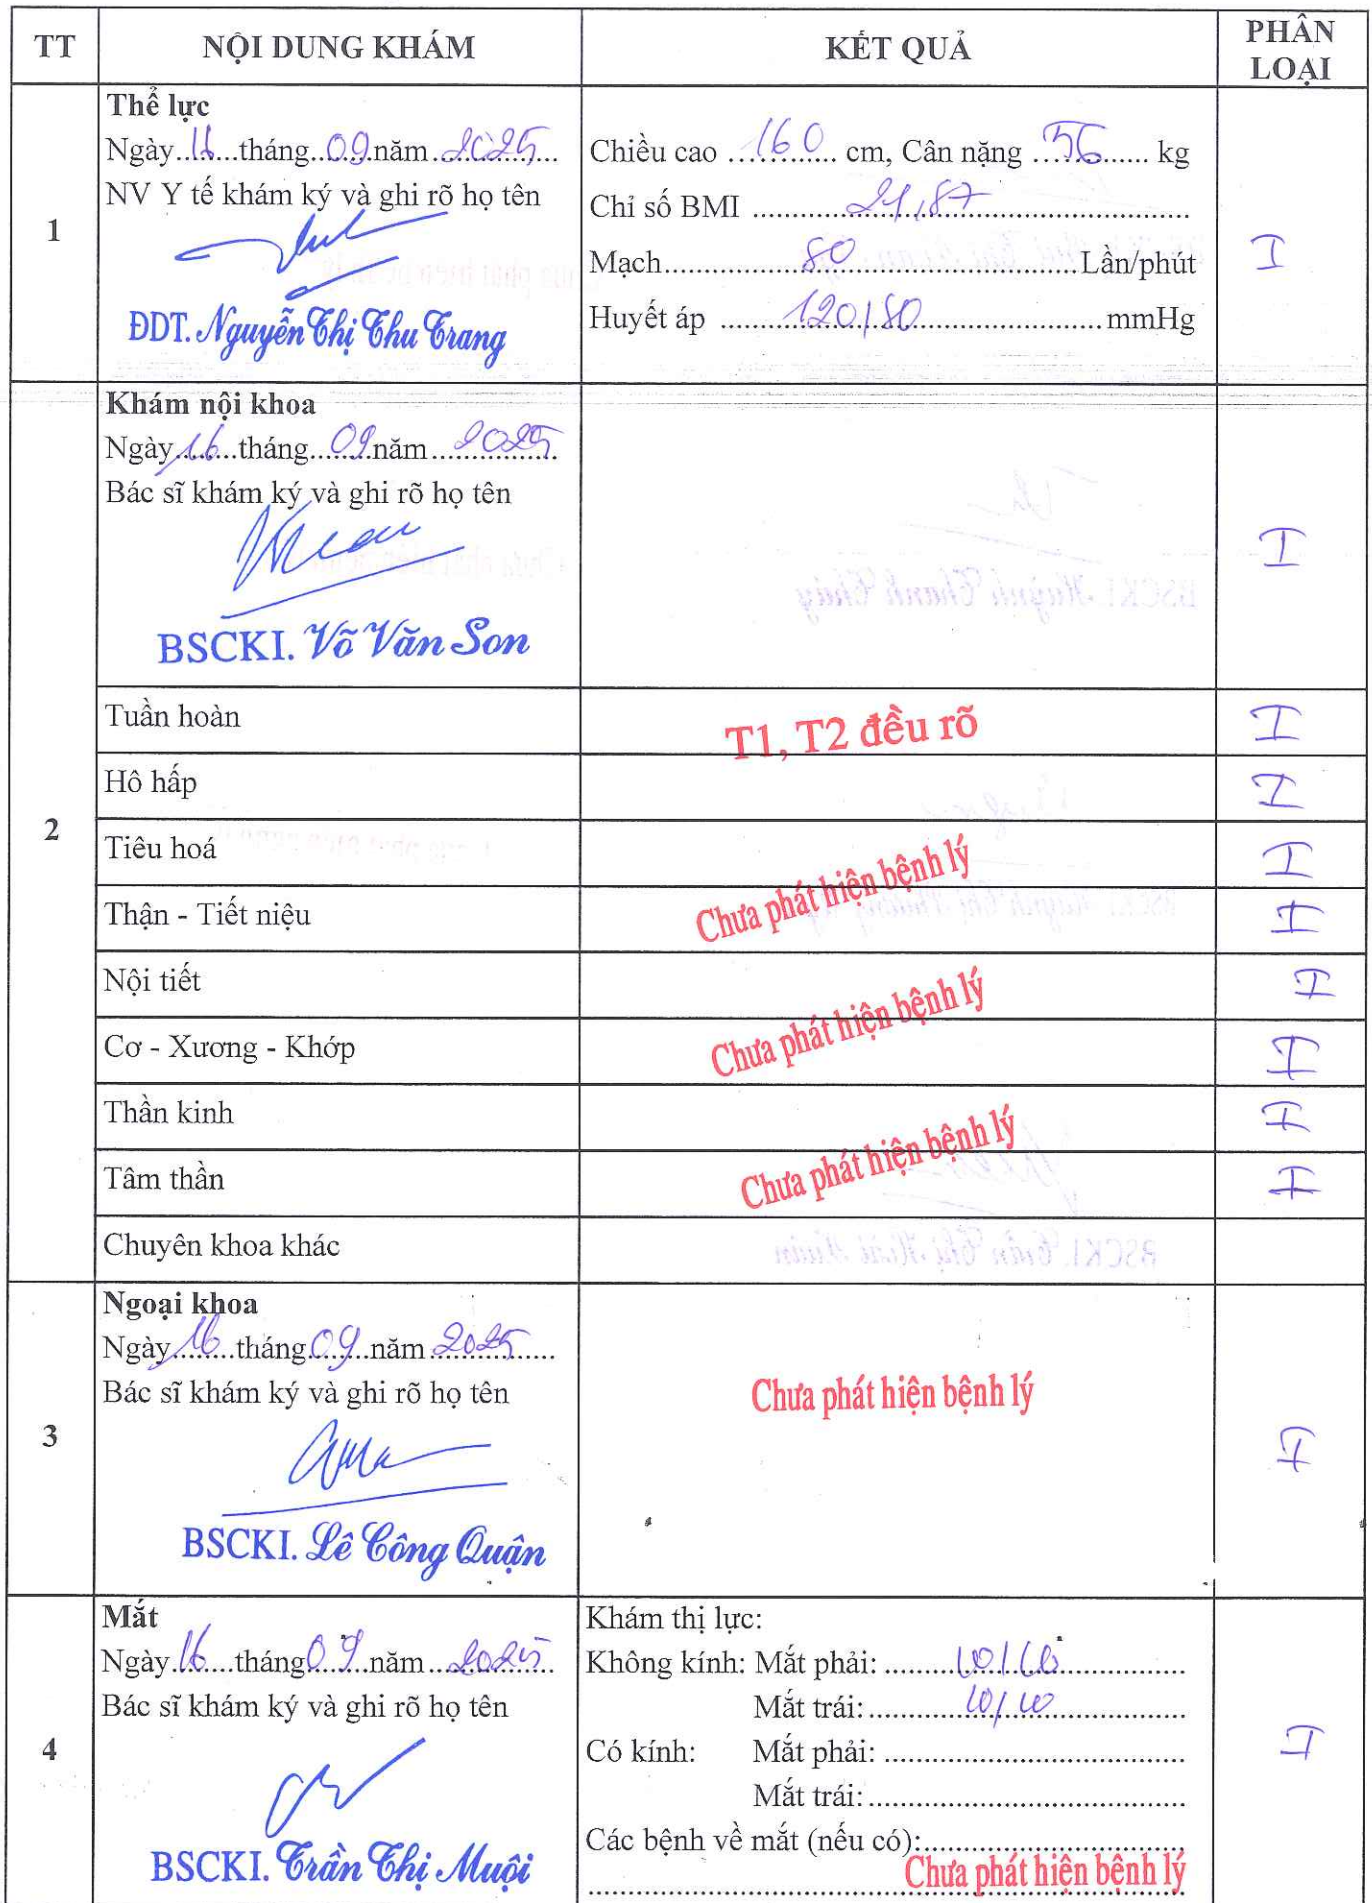 TT NỘI DUNG KHÁM KẾT QUẢ PHÂN LOẠI
1
Thể lực
Ngày 16 tháng 09 năm 2025
NV Y tế khám ký và ghi rõ họ tên
ĐDT. Nguyễn Thị Thu Trang
Chiều cao 160 cm, Cân nặng 56 kg
Chỉ số BMI 21,87
Mạch 80 Lần/phút
Huyết áp 120/80 mmHg
I
2
Khám nội khoa
Ngày 16 tháng 09 năm 2025
Bác sĩ khám ký và ghi rõ họ tên
BSCKI. Võ Văn Son
I
Tuần hoàn T1, T2 đều rõ I
Hô hấp I
Tiêu hoá I
Chưa phát hiện bệnh lý
Thận - Tiết niệu I
Nội tiết I
Chưa phát hiện bệnh lý
Cơ - Xương - Khớp I
Thần kinh I
Chưa phát hiện bệnh lý
Tâm thần I
Chuyên khoa khác
3
Ngoại khoa
Ngày 16 tháng 09 năm 2025
Bác sĩ khám ký và ghi rõ họ tên
BSCKI. Lê Công Quận
Chưa phát hiện bệnh lý
I
4
Mắt
Ngày 16 tháng 09 năm 2025
Bác sĩ khám ký và ghi rõ họ tên
BSCKI. Trần Thị Muội
Khám thị lực:
Không kính: Mắt phải: 10/10
Mắt trái: 10/10
Có kính: Mắt phải:
Mắt trái:
Các bệnh về mắt (nếu có):
Chưa phát hiện bệnh lý
I